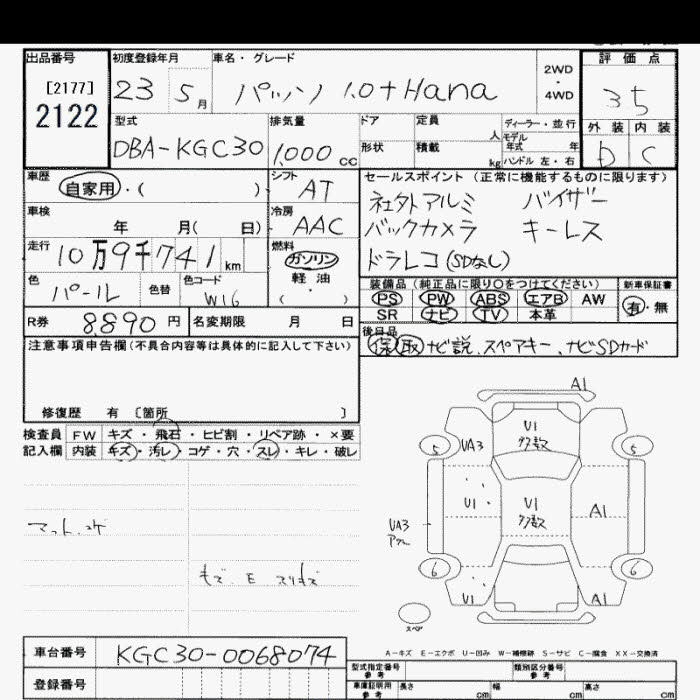 出品番号 初度登録年月 車名・グレード 評価点
[2177]
2122
23 5月 パッソ 1.0+Hana
2WD・4WD
35
型式 排気量 ドア 定員 人 ディーラー・並行
モデル年式 年
外装 内装
DBA-KGC30 1,000cc 形状 積載 kg ハンドル 左・右
D C
車歴 自家用・( ) シフト AT
セールスポイント(正常に機能するものに限ります)
社外アルミ バイザー
バックカメラ キーレス
ドラレコ(SDなし)
車検 年 月( 日) 冷房 AAC
走行 10万9千741km 燃料 ガソリン
軽油
( )
色 パール 色替 色コード W16
装備品(純正品に限り○をつけてください) 新車保証書
PS PW ABS エアB AW 有・無
SR ナビ TV 本革
R券 8,890円 名変期限 月 日
後日品
保 取 ナビ説、スペアキー、ナビSDカード
注意事項申告欄(不具合内容等は具体的に記入して下さい)
修復歴 有 〔箇所 〕
検査員記入欄
FW キズ・飛石・ヒビ割・リペア跡・×要
内装 キズ・汚レ・コゲ・穴・スレ・キレ・破レ
マット、コゲ
A1
5 UA3 U1 多数 5
U1 U1 多数 A1
UA3
6 6
U1 A1
スペア
A-キズ E-エクボ U-凹み W-補修跡 S-サビ C-腐食 XX-交換済
車台番号 KGC30-0068074
登録番号
型式指定番号 参考 類別区分番号 参考
車庫証明用 参考 長さ cm 幅 cm 高さ cm